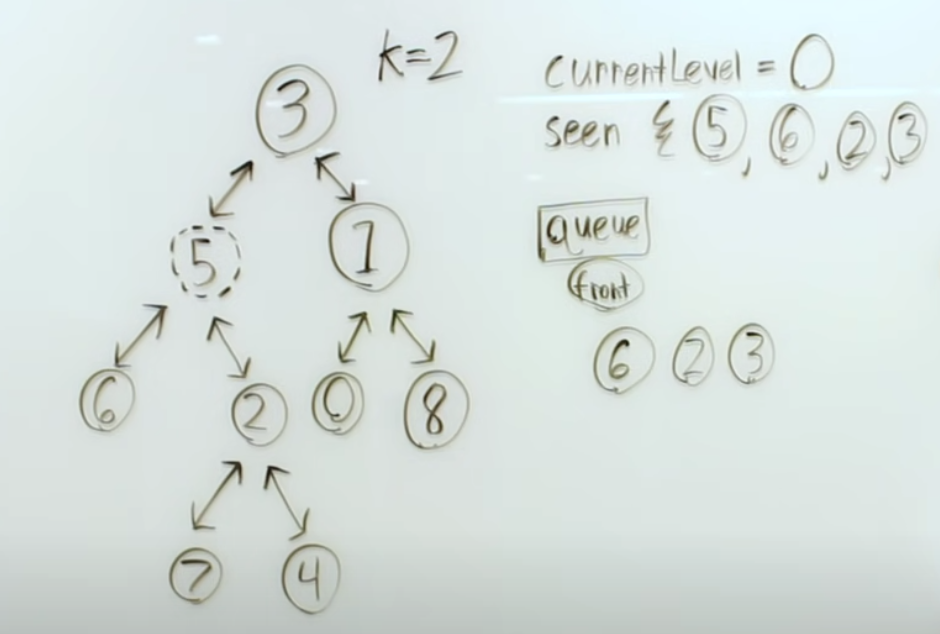 k=2
3
5 1
6 2 0 8
7 4
currentLevel = 0
seen { 5, 6, 2, 3
queue
front
6 2 3